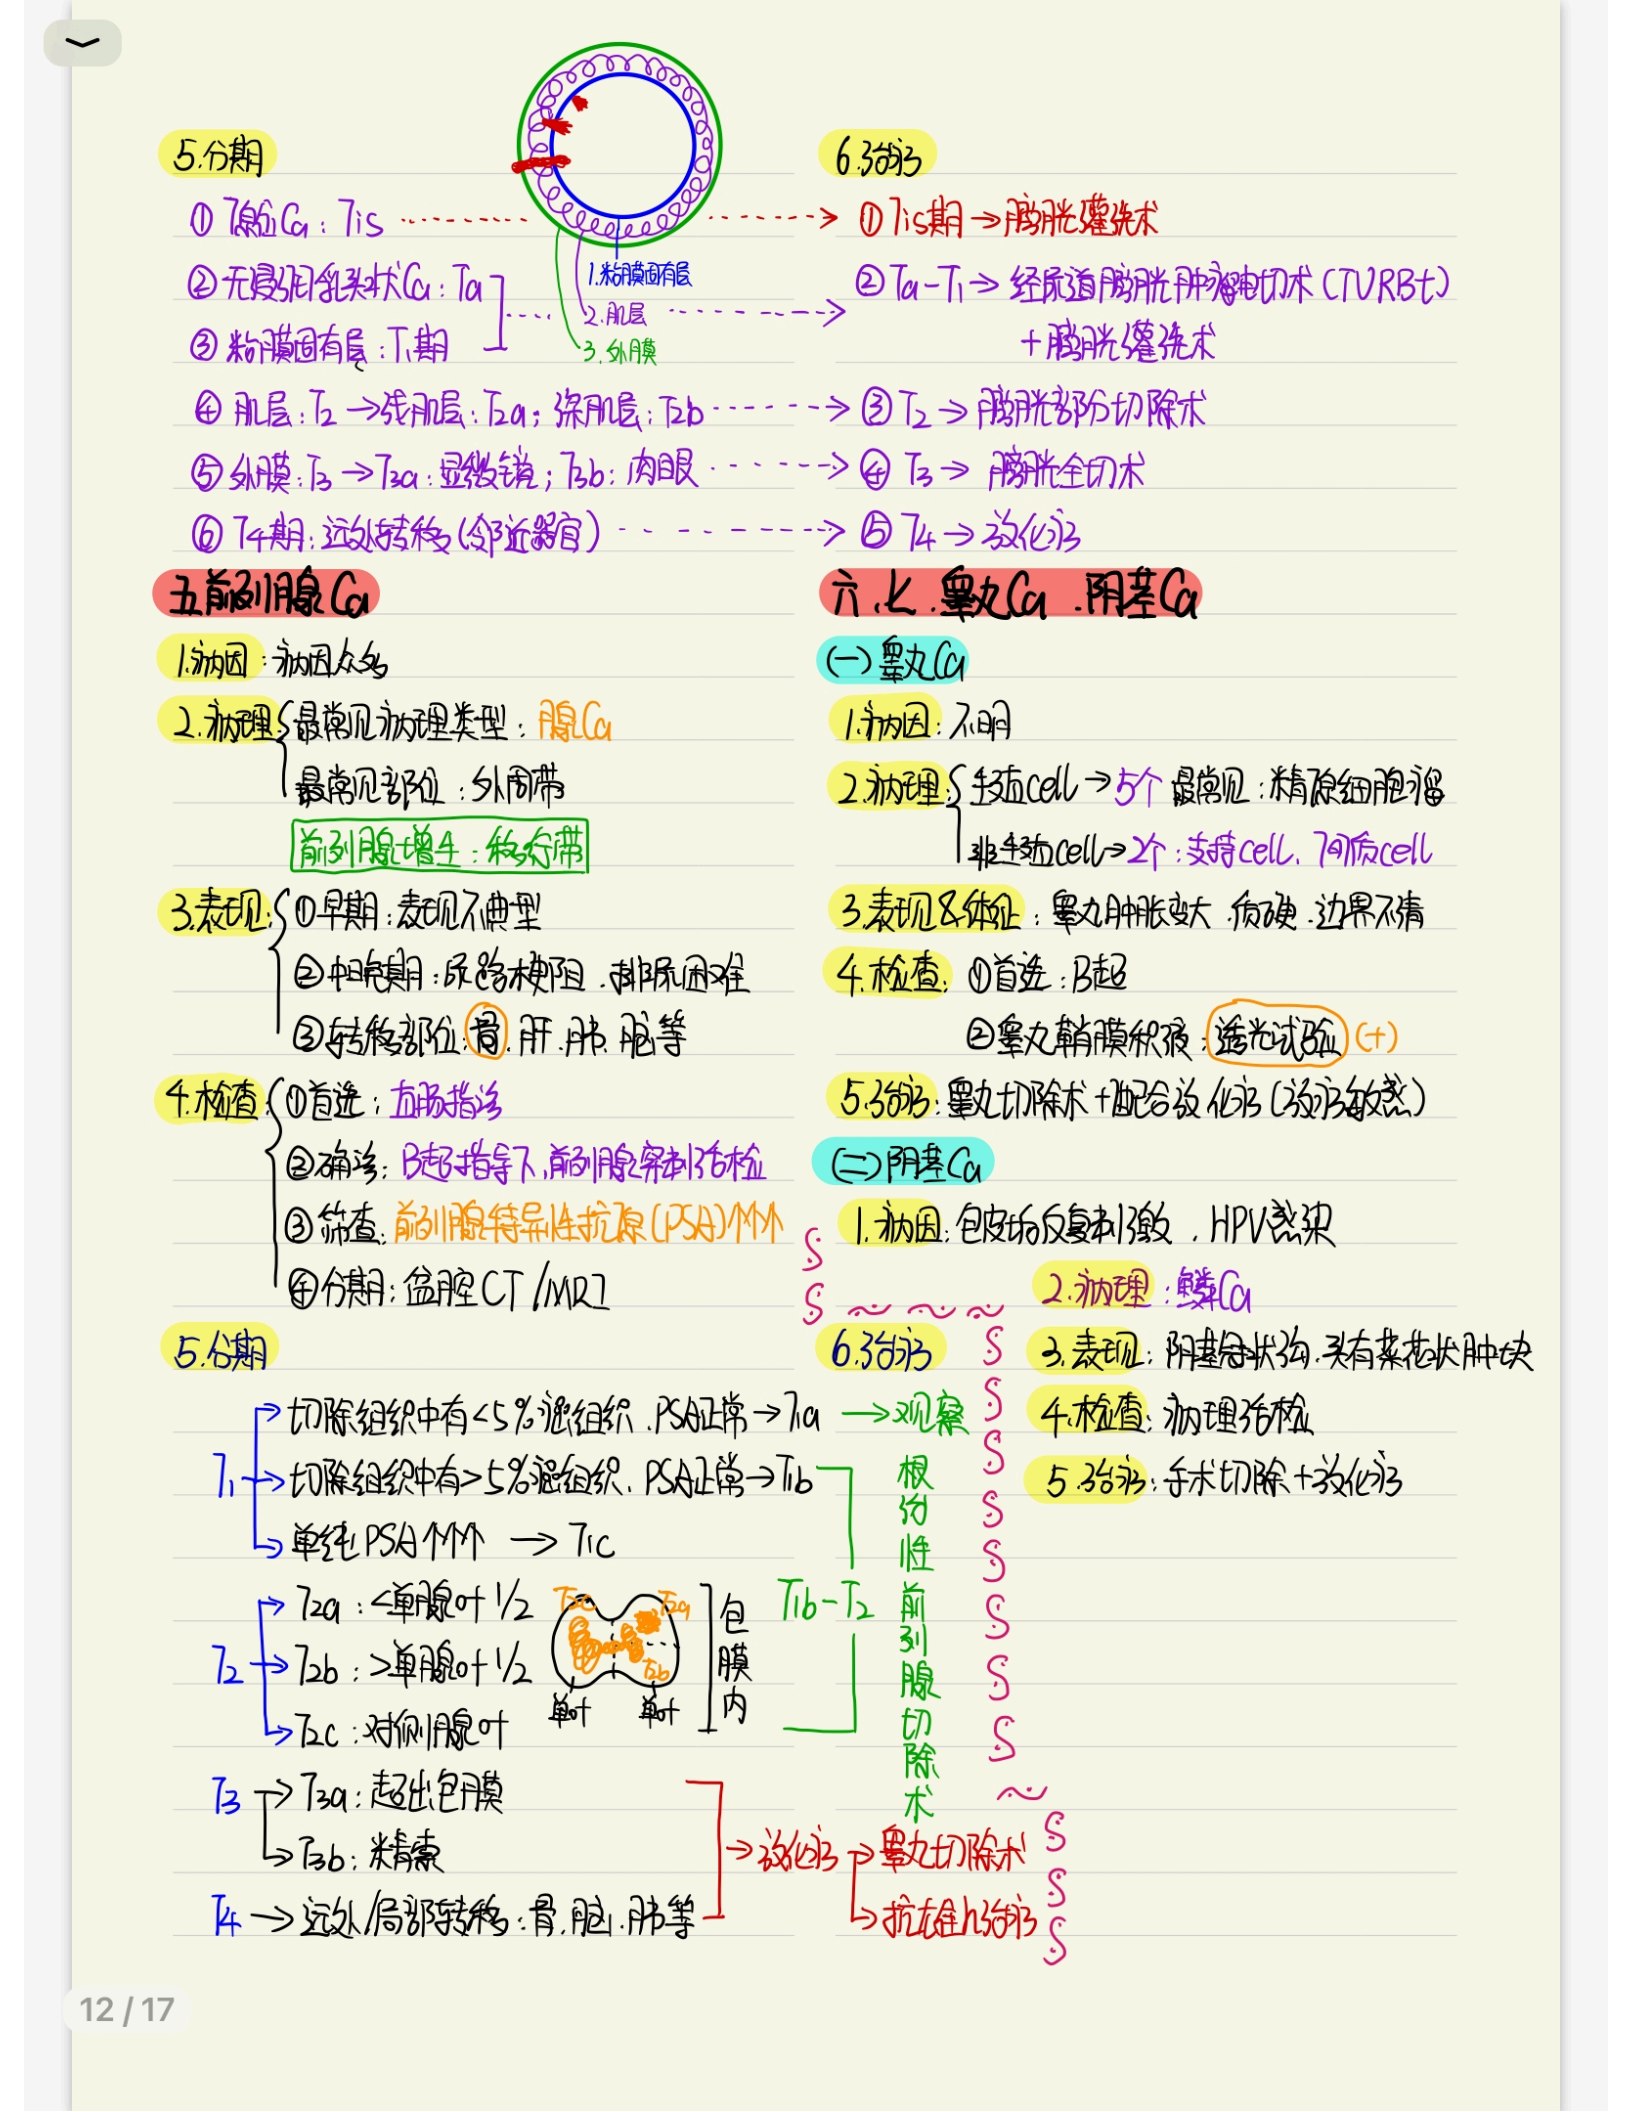 5.分期
① 原位Ca：Tis
② 无浸润乳头状Ca：Ta
③ 粘膜固有层：T1期
④ 肌层：T2→浅肌层：T2a；深肌层：T2b
⑤ 外膜：T3→T3a：显微镜；T3b：肉眼
⑥ T4期：远处转移(邻近器官)
1.粘膜固有层
2.肌层
3.外膜
6.治疗
①Tis期→膀胱灌洗术
②Ta-T1→经尿道膀胱肿瘤电切术(TURBt)
+膀胱灌洗术
③T2→膀胱部分切除术
④T3→膀胱全切术
⑤T4→放化疗
五.前列腺Ca
1.病因：病因众多
2.病理：最常见病理类型：腺Ca
最常见部位：外周带
前列腺增生：移行带
3.表现：①早期：表现不典型
②中晚期：尿路梗阻、排尿困难
③转移部位：骨.肝.肺.脑等
4.检查：①首选：直肠指诊
②确诊：B超指导下,前列腺穿刺活检
③筛查：前列腺特异性抗原(PSA)↑↑↑
④分期：盆腔CT/MRI
5.分期
T1
切除组织中有<5%癌组织、PSA正常→T1a
切除组织中有>5%癌组织、PSA正常→T1b
单纯PSA↑↑↑→T1c
T2
T2a：<单腺叶1/2
T2b：>单腺叶1/2
T2c：对侧腺叶
T2c
T2a
T2b
单叶 单叶
包膜内
T3→T3a：超出包膜
→T3b：精囊
T4→远处/局部转移：骨.脑.肺等
6.治疗
→观察
T1b-T2
根治性前列腺切除术
→放化疗→睾丸切除术
→抗雄治疗
六、七、睾丸Ca、阴茎Ca
(一)睾丸Ca
1.病因：不明
2.病理：生殖cell→5个 最常见：精原细胞瘤
非生殖cell→2个：支持cell、间质cell
3.表现&体征：睾丸肿胀变大.质硬.边界不清
4.检查：①首选：B超
②睾丸鞘膜积液：透光试验(+)
5.治疗：睾丸切除术+配合放化疗(放疗敏感)
(二)阴茎Ca
1.病因：包皮垢反复刺激、HPV感染
2.病理：鳞Ca
3.表现：阴茎冠状沟.头有菜花状肿块
4.检查：病理活检
5.治疗：手术切除+放化疗
12 / 17